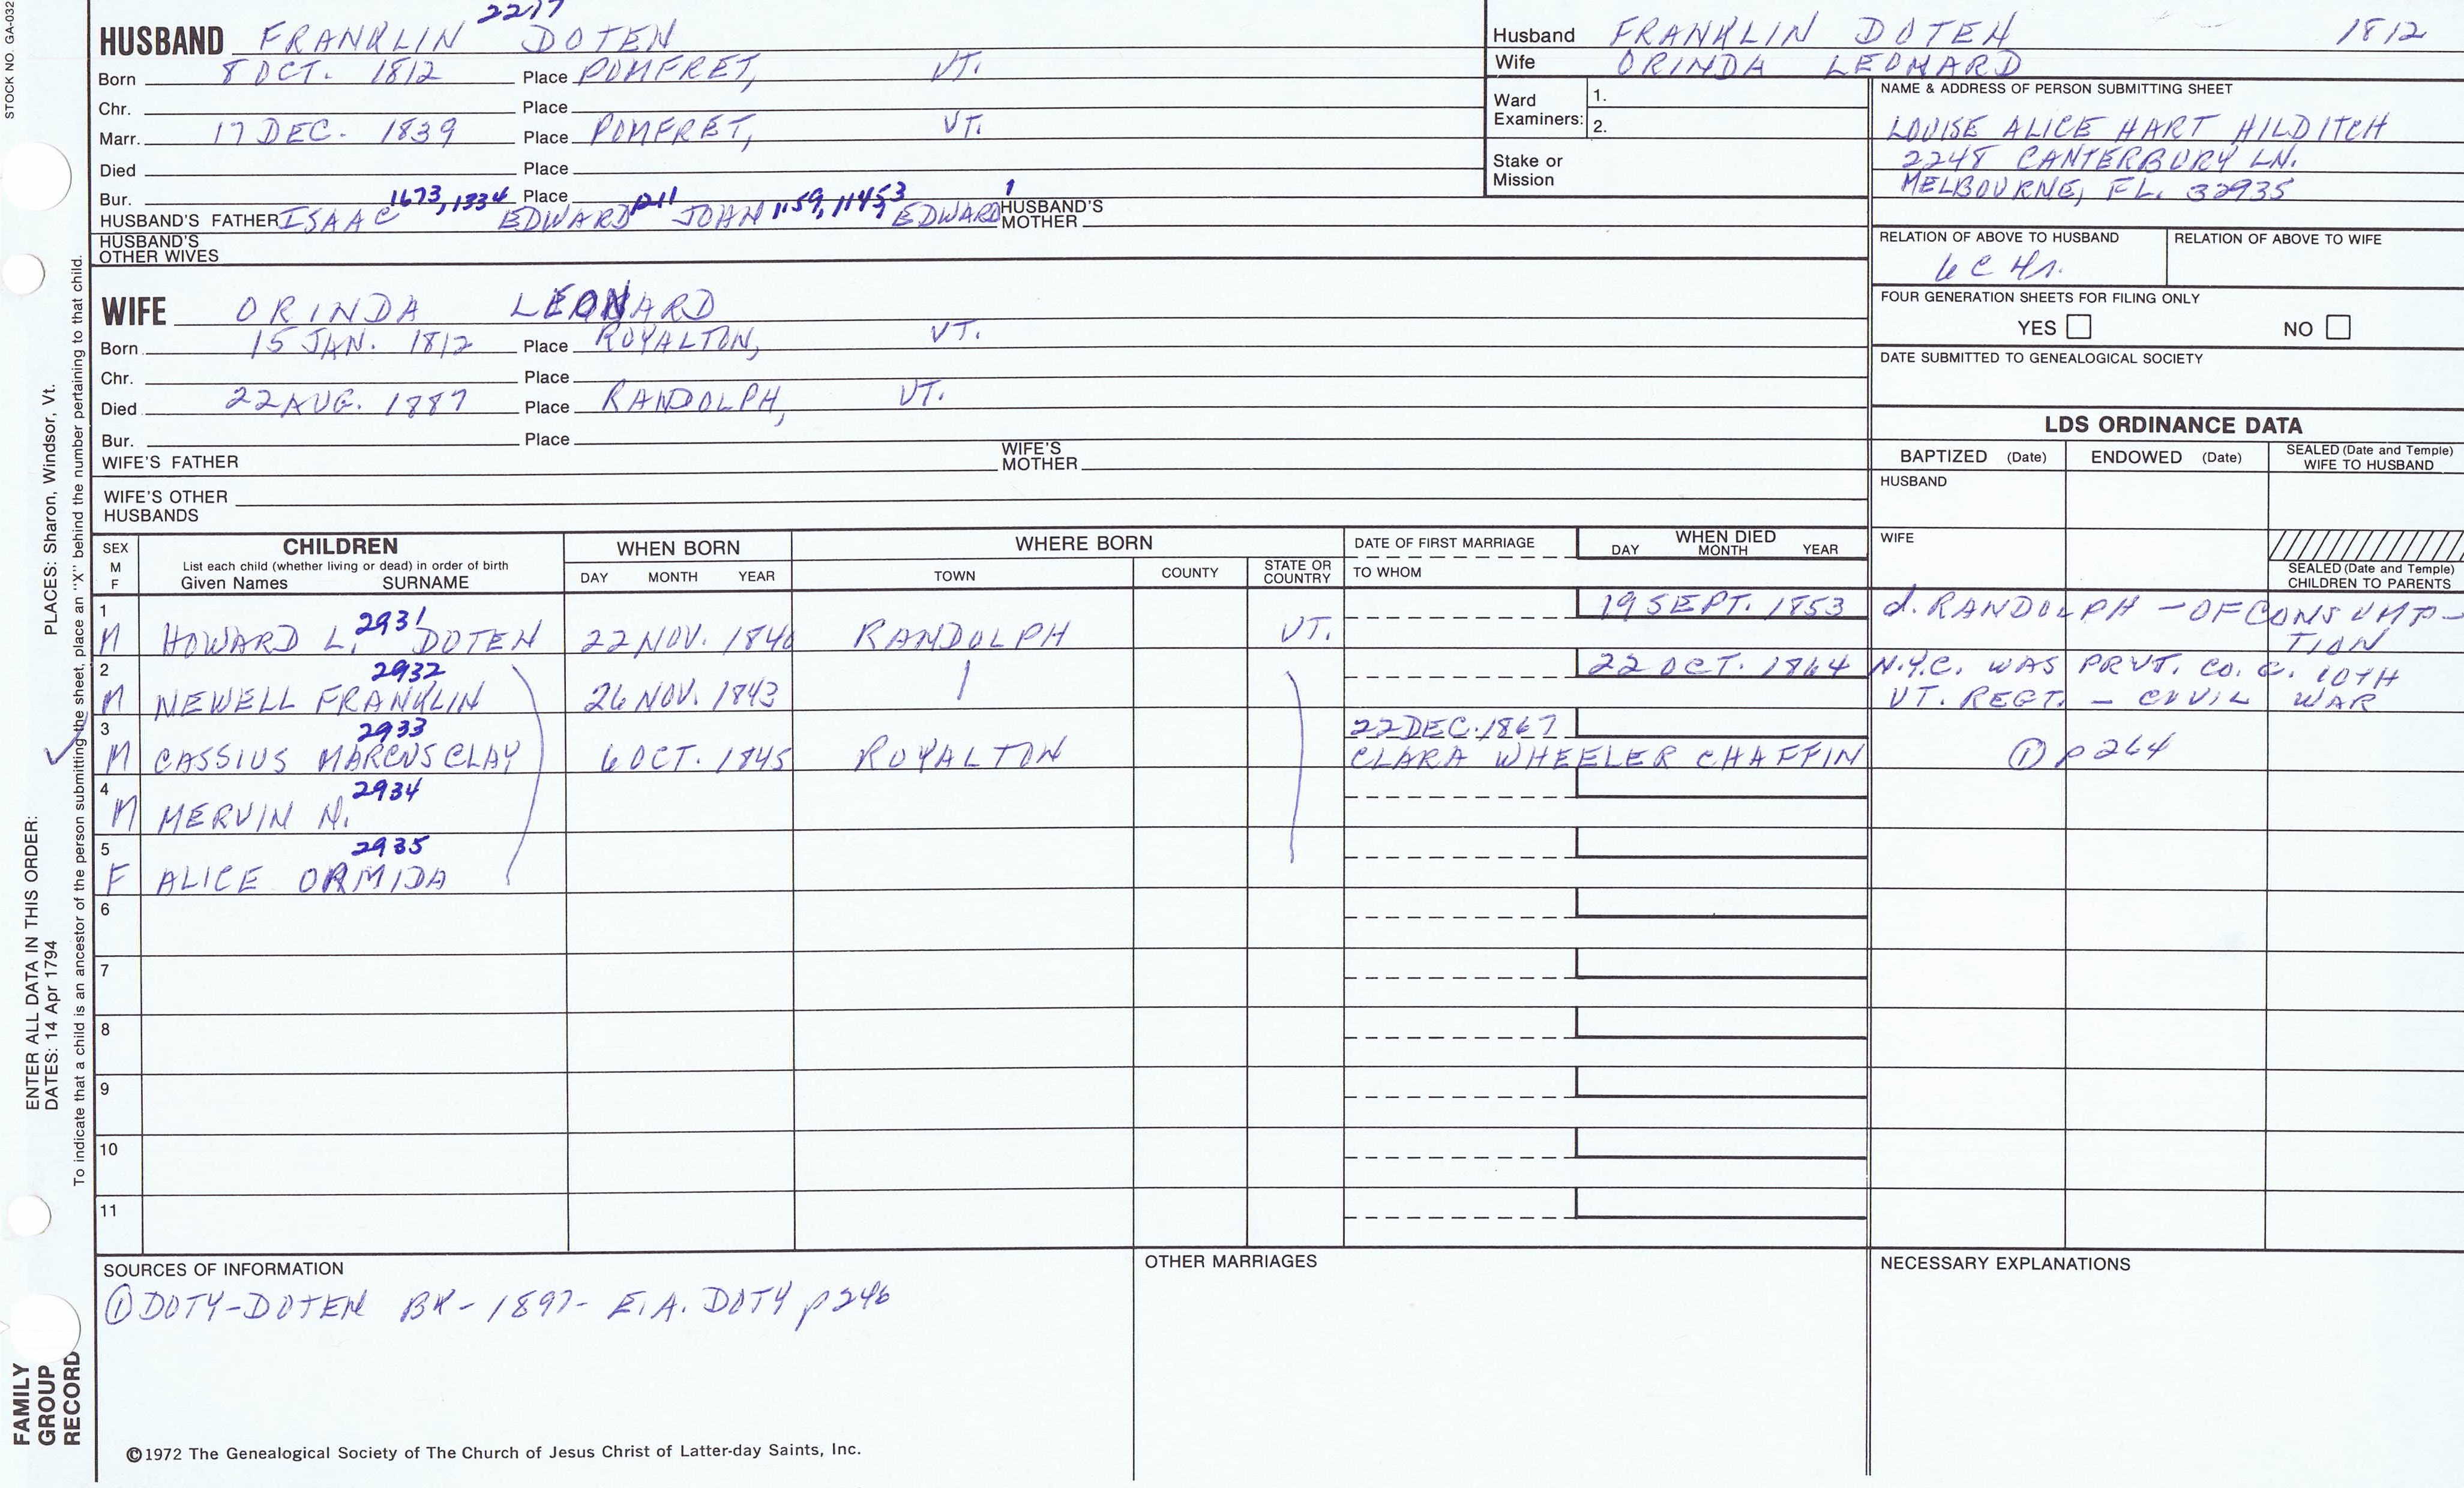 STOCK NO. GA-032
2217
HUSBAND FRANKLIN DOTEN
Born 8 OCT. 1812 Place POMFRET, VT.
Chr. Place
Marr. 17 DEC. 1839 Place POMFRET, VT.
Died Place
Bur. Place
1673, 1334 p211 1159, 11453 1
HUSBAND'S FATHER ISAAC EDWARD JOHN EDWARD HUSBAND'S MOTHER
HUSBAND'S OTHER WIVES
Husband FRANKLIN DOTEN 1812
Wife ORINDA LEONARD
Ward Examiners: 1.
2.
Stake or Mission
NAME & ADDRESS OF PERSON SUBMITTING SHEET
LOUISE ALICE HART HILDITCH
2248 CANTERBURY LN.
MELBOURNE, FL. 32935
RELATION OF ABOVE TO HUSBAND RELATION OF ABOVE TO WIFE
6C 4r.
FOUR GENERATION SHEETS FOR FILING ONLY
YES NO
DATE SUBMITTED TO GENEALOGICAL SOCIETY
WIFE ORINDA LEONARD
Born 15 JAN. 1812 Place ROYALTON, VT.
Chr. Place
Died 22 AUG. 1887 Place RANDOLPH, VT.
Bur. Place
WIFE'S FATHER WIFE'S MOTHER
WIFE'S OTHER HUSBANDS
LDS ORDINANCE DATA
BAPTIZED (Date) ENDOWED (Date) SEALED (Date and Temple) WIFE TO HUSBAND
HUSBAND
WIFE
SEALED (Date and Temple) CHILDREN TO PARENTS
SEX M F
CHILDREN
List each child (whether living or dead) in order of birth
Given Names SURNAME
WHEN BORN
DAY MONTH YEAR
WHERE BORN
TOWN COUNTY STATE OR COUNTRY
DATE OF FIRST MARRIAGE
TO WHOM
WHEN DIED
DAY MONTH YEAR
1 2931 19 SEPT. 1853 d. RANDOLPH - OF CONSUMP-
M HOWARD L. DOTEN 22 NOV. 1840 RANDOLPH VT. TION
2 2932 22 OCT. 1864 N.Y.C. WAS PRVT. CO. C. 10TH
M NEWELL FRANKLIN 26 NOV. 1843 VT. REGT. - CIVIL WAR
3 2933 22 DEC. 1867
M CASSIUS MARCUS CLAY 6 OCT. 1845 ROYALTON CLARA WHEELER CHAFFIN ① p 264
4 2934
M MERVIN N.
5 2935
F ALICE ORMIDA
6
7
8
9
10
11
SOURCES OF INFORMATION
① DOTY-DOTEN BK - 1897 - E.A. DOTY p 246
OTHER MARRIAGES
NECESSARY EXPLANATIONS
©1972 The Genealogical Society of The Church of Jesus Christ of Latter-day Saints, Inc.
FAMILY GROUP RECORD
ENTER ALL DATA IN THIS ORDER:
DATES: 14 Apr 1794 PLACES: Sharon, Windsor, Vt.
To indicate that a child is an ancestor of the person submitting the sheet, place an "X" behind the number pertaining to that child.